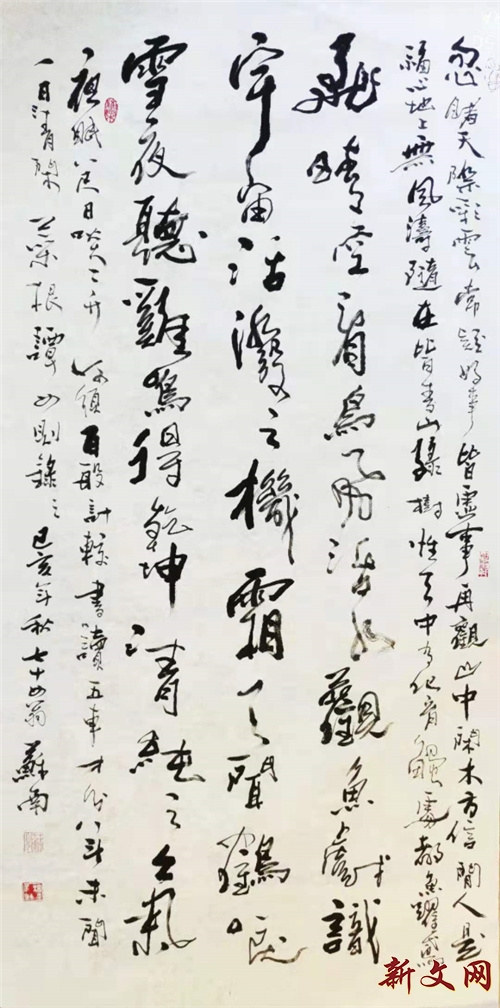 忽睹天際彩雲常疑好事皆虛事再觀山中閑木方信閒人是
福心地上無風濤隨在皆青山綠樹性天中有化育觸處都魚躍鳶
飛晴空看鳥飛活水觀魚戲識
宇宙活潑之機霜天聞鶴唳
雪夜聽雞鳴得乾坤清純之氣
夜眠八尺日啖二升何須百般計較書讀五車才分八斗未聞
一日清閑 菜根譚四則錄之 己亥年秋七十四翁蘇南
新文网